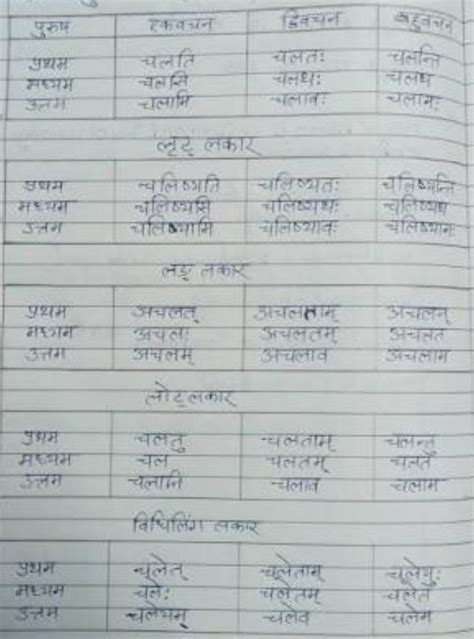 पुरुष एकवचन द्विवचन बहुवचन
प्रथम चलति चलतः चलन्ति
मध्यम चलसि चलथः चलथ
उत्तम चलामि चलावः चलामः
लृट् लकार
प्रथम चलिष्यति चलिष्यतः चलिष्यन्ति
मध्यम चलिष्यसि चलिष्यथः चलिष्यथ
उत्तम चलिष्यामि चलिष्यावः चलिष्यामः
लङ् लकार
प्रथम अचलत् अचलताम् अचलन्
मध्यम अचलः अचलतम् अचलत
उत्तम अचलम् अचलाव अचलाम
लोट् लकार
प्रथम चलतु चलताम् चलन्तु
मध्यम चल चलतम् चलत
उत्तम चलानि चलाव चलाम
विधिलिंग लकार
प्रथम चलेत् चलेताम् चलेयुः
मध्यम चलेः चलेतम् चलेत
उत्तम चलेयम् चलेव चलेम